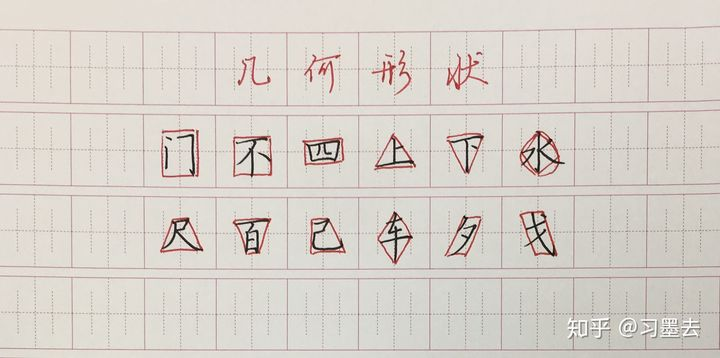 几何形状
门不四上下水
尺百己车夕戈
知乎 @习墨去